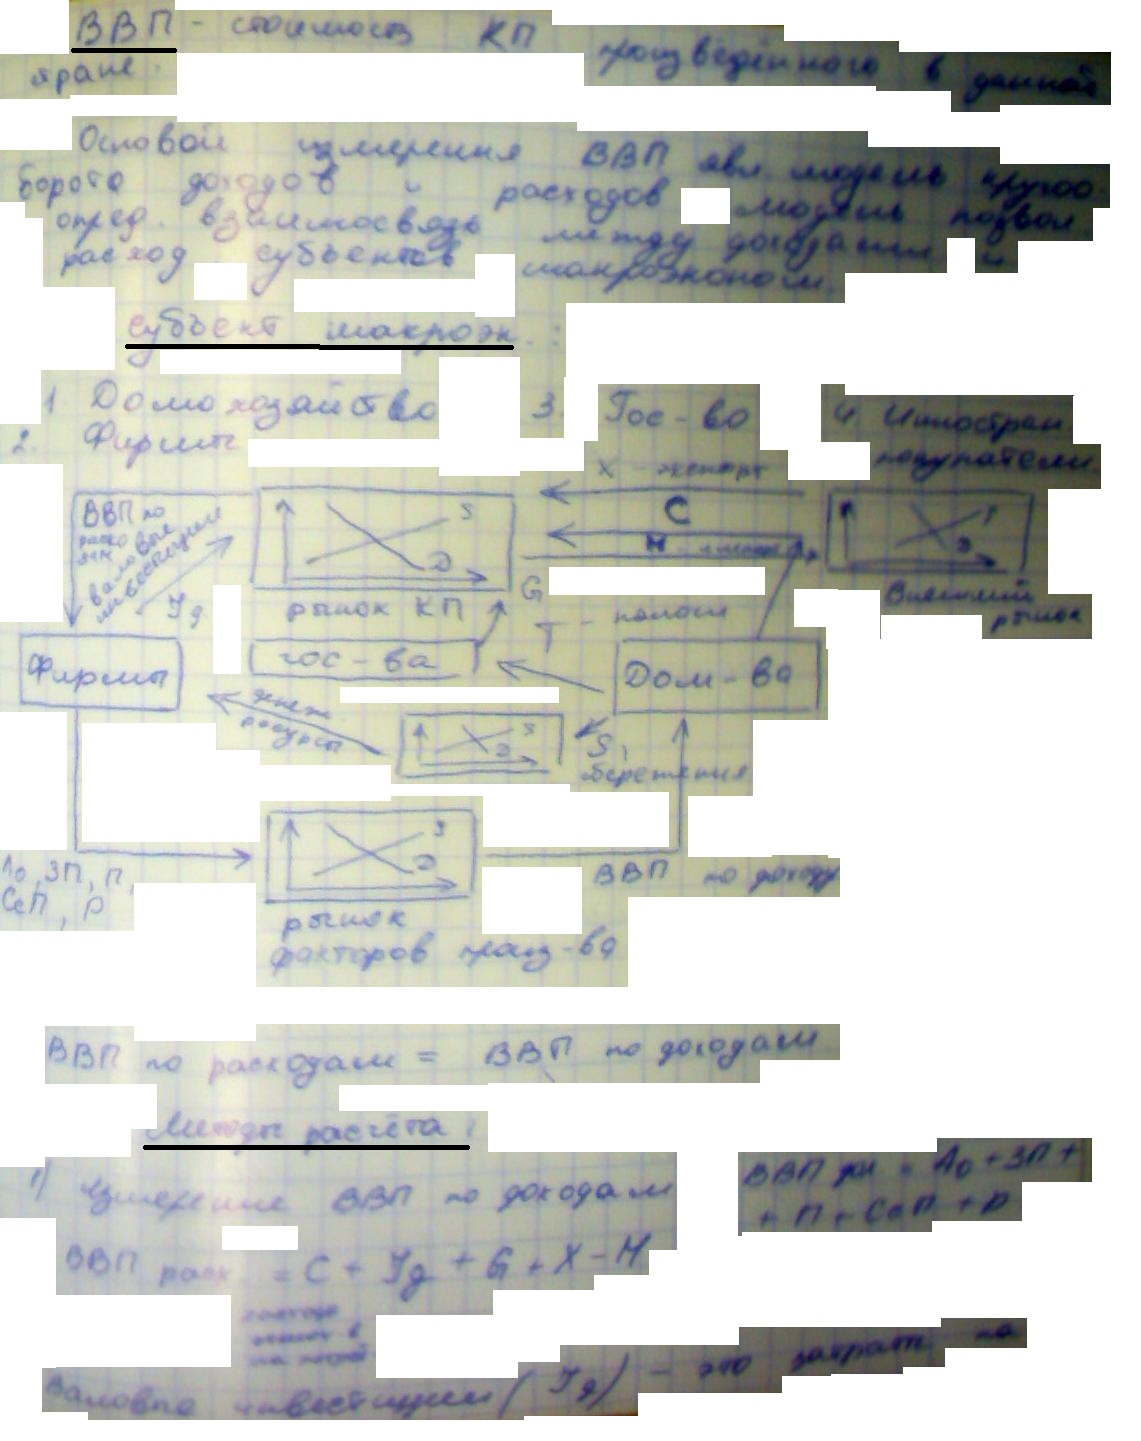 ВВП - стоимость КП произведённого в данной
яране.
Основой измерения ВВП явл. модель кругоо-
борота доходов и расходов модель позвол
опред. взаимосвязь между доходами и
расход субъектов макроэконом.
субъект макроэк. :
1. Домохозяйство 3. Гос-во 4. Иностран
2. Фирмы покупатели
X - экспорт
ВВП по
валовые
инвестиции
Jg
S
D
C
M -
G
рынок КП
Внешний
рынок
T - налоги
Фирмы
гос-ва
Дом-ва
денеж.
ресурсы
S
D
S,
сбережения
S
D
Ао, ЗП, П,
СсП, р
ВВП по доходу
рынок
факторов произ-ва
ВВП по расходам = ВВП по доходам
Методы расчёта:
1) Измерение ВВП по доходам
ВВП дох = Ао + ЗП +
+ П + СсП + р
ВВП расх. = C + Jg + G + X - M
Валовые инвестиции (Jg) - это затраты на